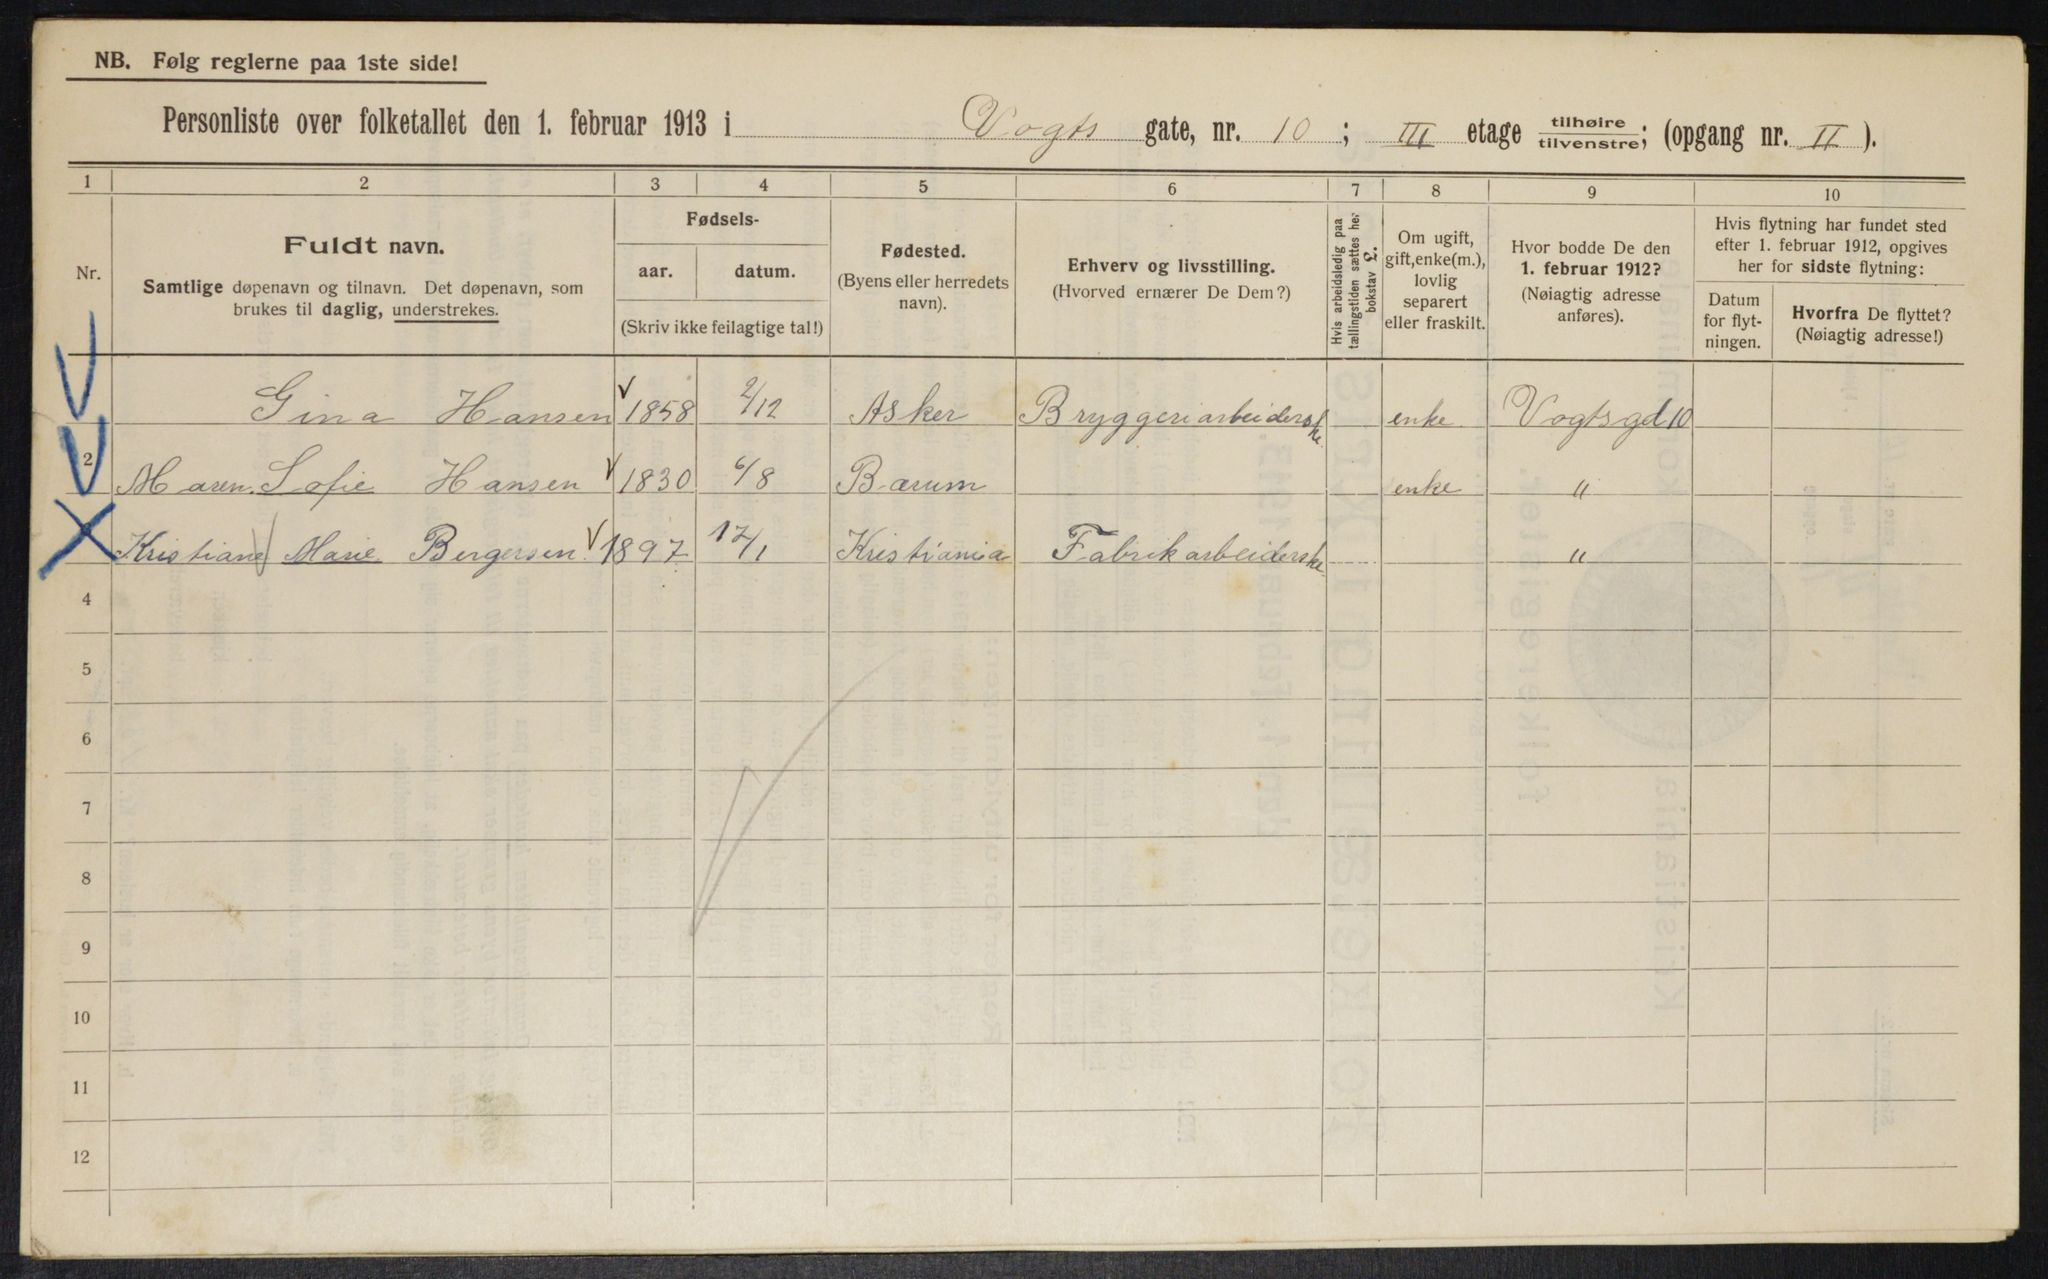 NB. Følg reglerne paa 1ste side!
Personliste over folketallet den 1. februar 1913 i Vogts gate, nr. 10; III etage tilhøire/tilvenstre; (opgang nr. II).
1 2 3 4 5 6 7 8 9 10
Nr.
Fuldt navn.
Samtlige døpenavn og tilnavn. Det døpenavn, som
brukes til daglig, understrekes.
Fødsels-
aar. datum.
(Skriv ikke feilagtige tal!)
Fødested.
(Byens eller herredets
navn).
Erhverv og livsstilling.
(Hvorved ernærer De Dem?)
Hvis arbeidsledig paa
tællingstiden sættes her
bokstav L.
Om ugift,
gift, enke(m.),
lovlig
separert
eller fraskilt.
Hvor bodde De den
1. februar 1912?
(Nøiagtig adresse
anføres).
Hvis flytning har fundet sted
efter 1. februar 1912, opgives
her for sidste flytning:
Datum
for flyt-
ningen.
Hvorfra De flyttet?
(Nøiagtig adresse!)
Gina Hansen 1858 2/12 Asker Bryggeriarbeiderske enke Vogtsgd 10
2 Maren Sofie Hansen 1830 6/8 Bærum enke "
Kristiane Marie Bergersen 1897 17/1 Kristiania Fabrikarbeiderske "
4
5
6
7
8
9
10
11
12